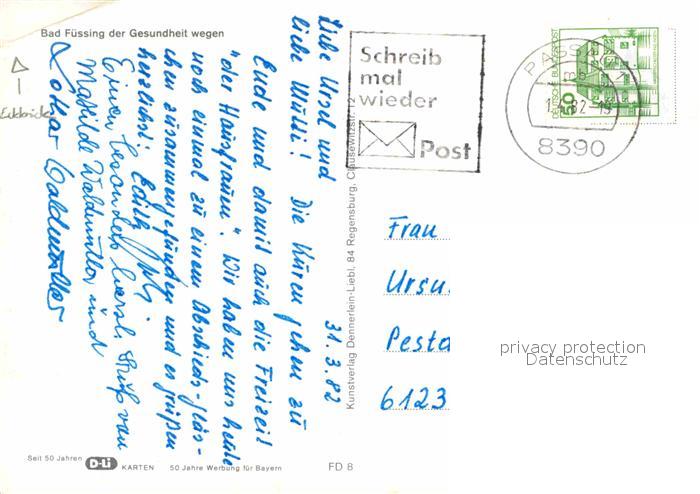 Bad Füssing der Gesundheit wegen
31.3.82
Liebe Ursel und
liebe Willi! Die Kuren gehen zu
Ende und damit auch die Freizeit
"der Hausfrauen." Wir haben uns heute
noch einmal zu einem Abschieds-gläs-
chen zusammengefunden und es grüßen
herzlichst: Edith
Einen besonders herzl. Gruß von
Mathilde Waldmüller und
Lothar Waldmüller
Kunstverlag Dennerlein-Liebl, 84 Regensburg, Clausewitzstr. 12
Schreib
mal
wieder
Post
PASSAU
mb
82-15
8390
DEUTSCHE BUNDESPOST
50
Frau
Ursu
Pesta
6123
privacy protection
Datenschutz
Seit 50 Jahren D-Li KARTEN 50 Jahre Werbung für Bayern FD 8